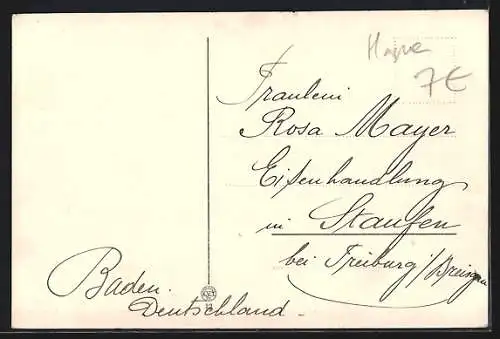 7€
Fräulein
Rosa Mayer
Eisenhandlung
in Staufen
bei Freiburg i/Breisgau
Baden.
Deutschland.